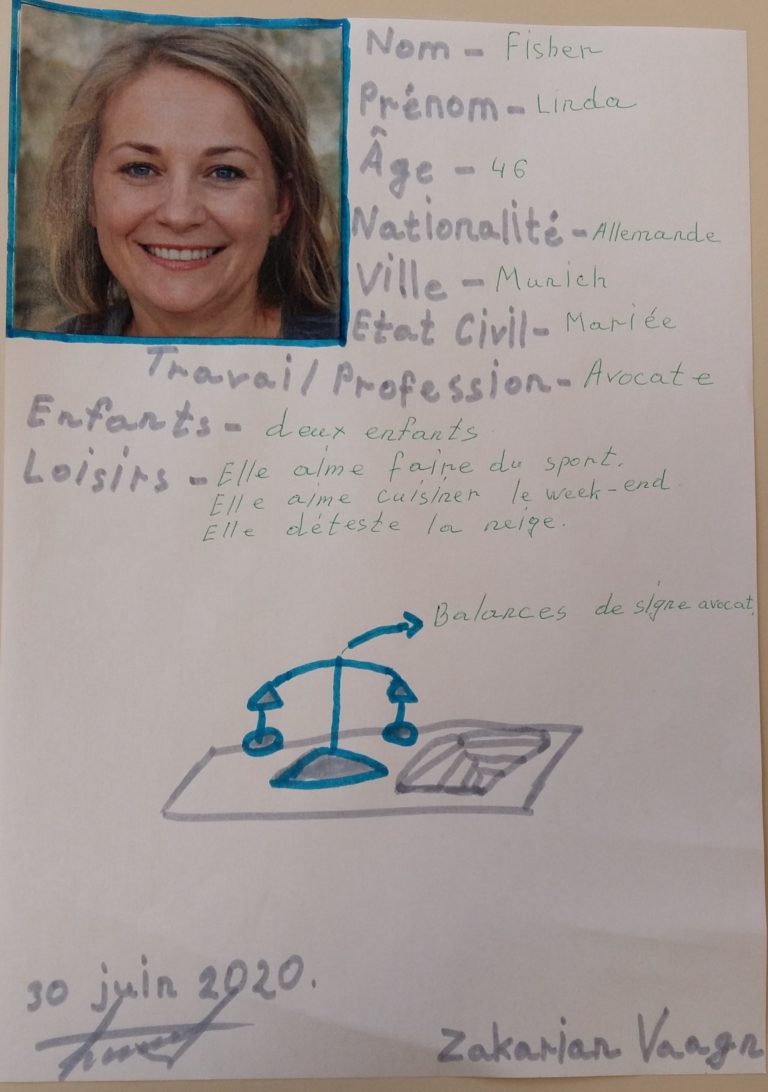 Nom - Fisher
Prénom - Linda
Âge - 46
Nationalité - Allemande
Ville - Munich
Etat Civil - Mariée
Travail/Profession - Avocate
Enfants - deux enfants
Loisirs - Elle aime faire du sport.
Elle aime cuisiner le week-end.
Elle déteste la neige.
Balances de signe avocat.
30 juin 2020.
Zakarian Vaagn